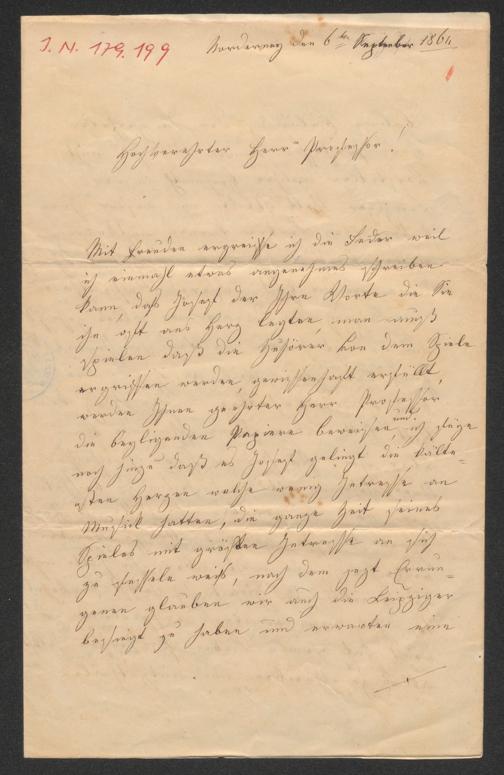 I. N. 179.199
Norderney den 6ten September 1864
Hochverehrter Herr Professor!
Mit Freuden ergreiffe ich die Feder weil
ich einmahl etwas angenehmes schreiben
kann, daß Josef der Ihre Worte die Sie
ihm oft ans Herz legten, man muß
spielen daß die Zuhörer von dem Spiele
ergriffen werden, gewissenhaft erfüllt,
werden Ihnen geehrter Herr Professor
die beyligenden Papiere beweisen und ich füge
noch hinzu daß es Josef gelingt die kälte-
sten Herzen welche wenig Intresse an
Musick hatten, die ganze Zeit seines
Spieles mit größten Intresse an sich
zu fesseln weiß, nach dem jezt Errun-
genen glauben wir auch die Leipziger
besiegt zu haben und erwarten eine